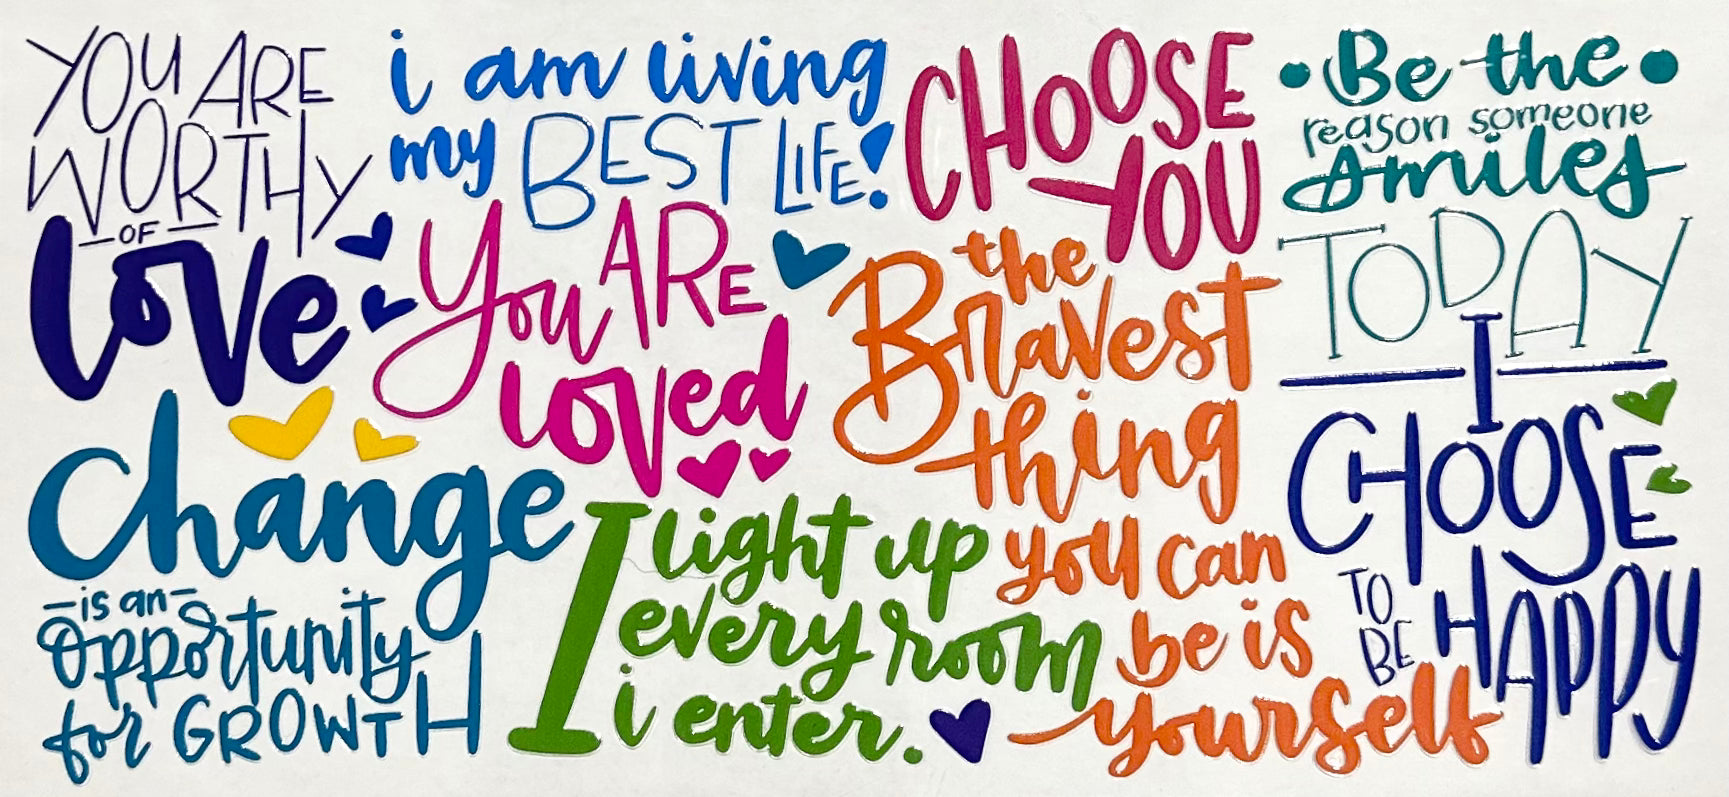 YOU ARE
WORTHY
OF
love
i am living
my BEST LIFE!
CHOOSE
YOU
Be the
reason someone
smiles
TODAY
You ARE
loved
the
Bravest
thing
you can
be is
yourself
I
CHOOSE
TO
BE
HAPPY
Change
is an
opportunity
for GROWTH
I light up
every room
i enter.